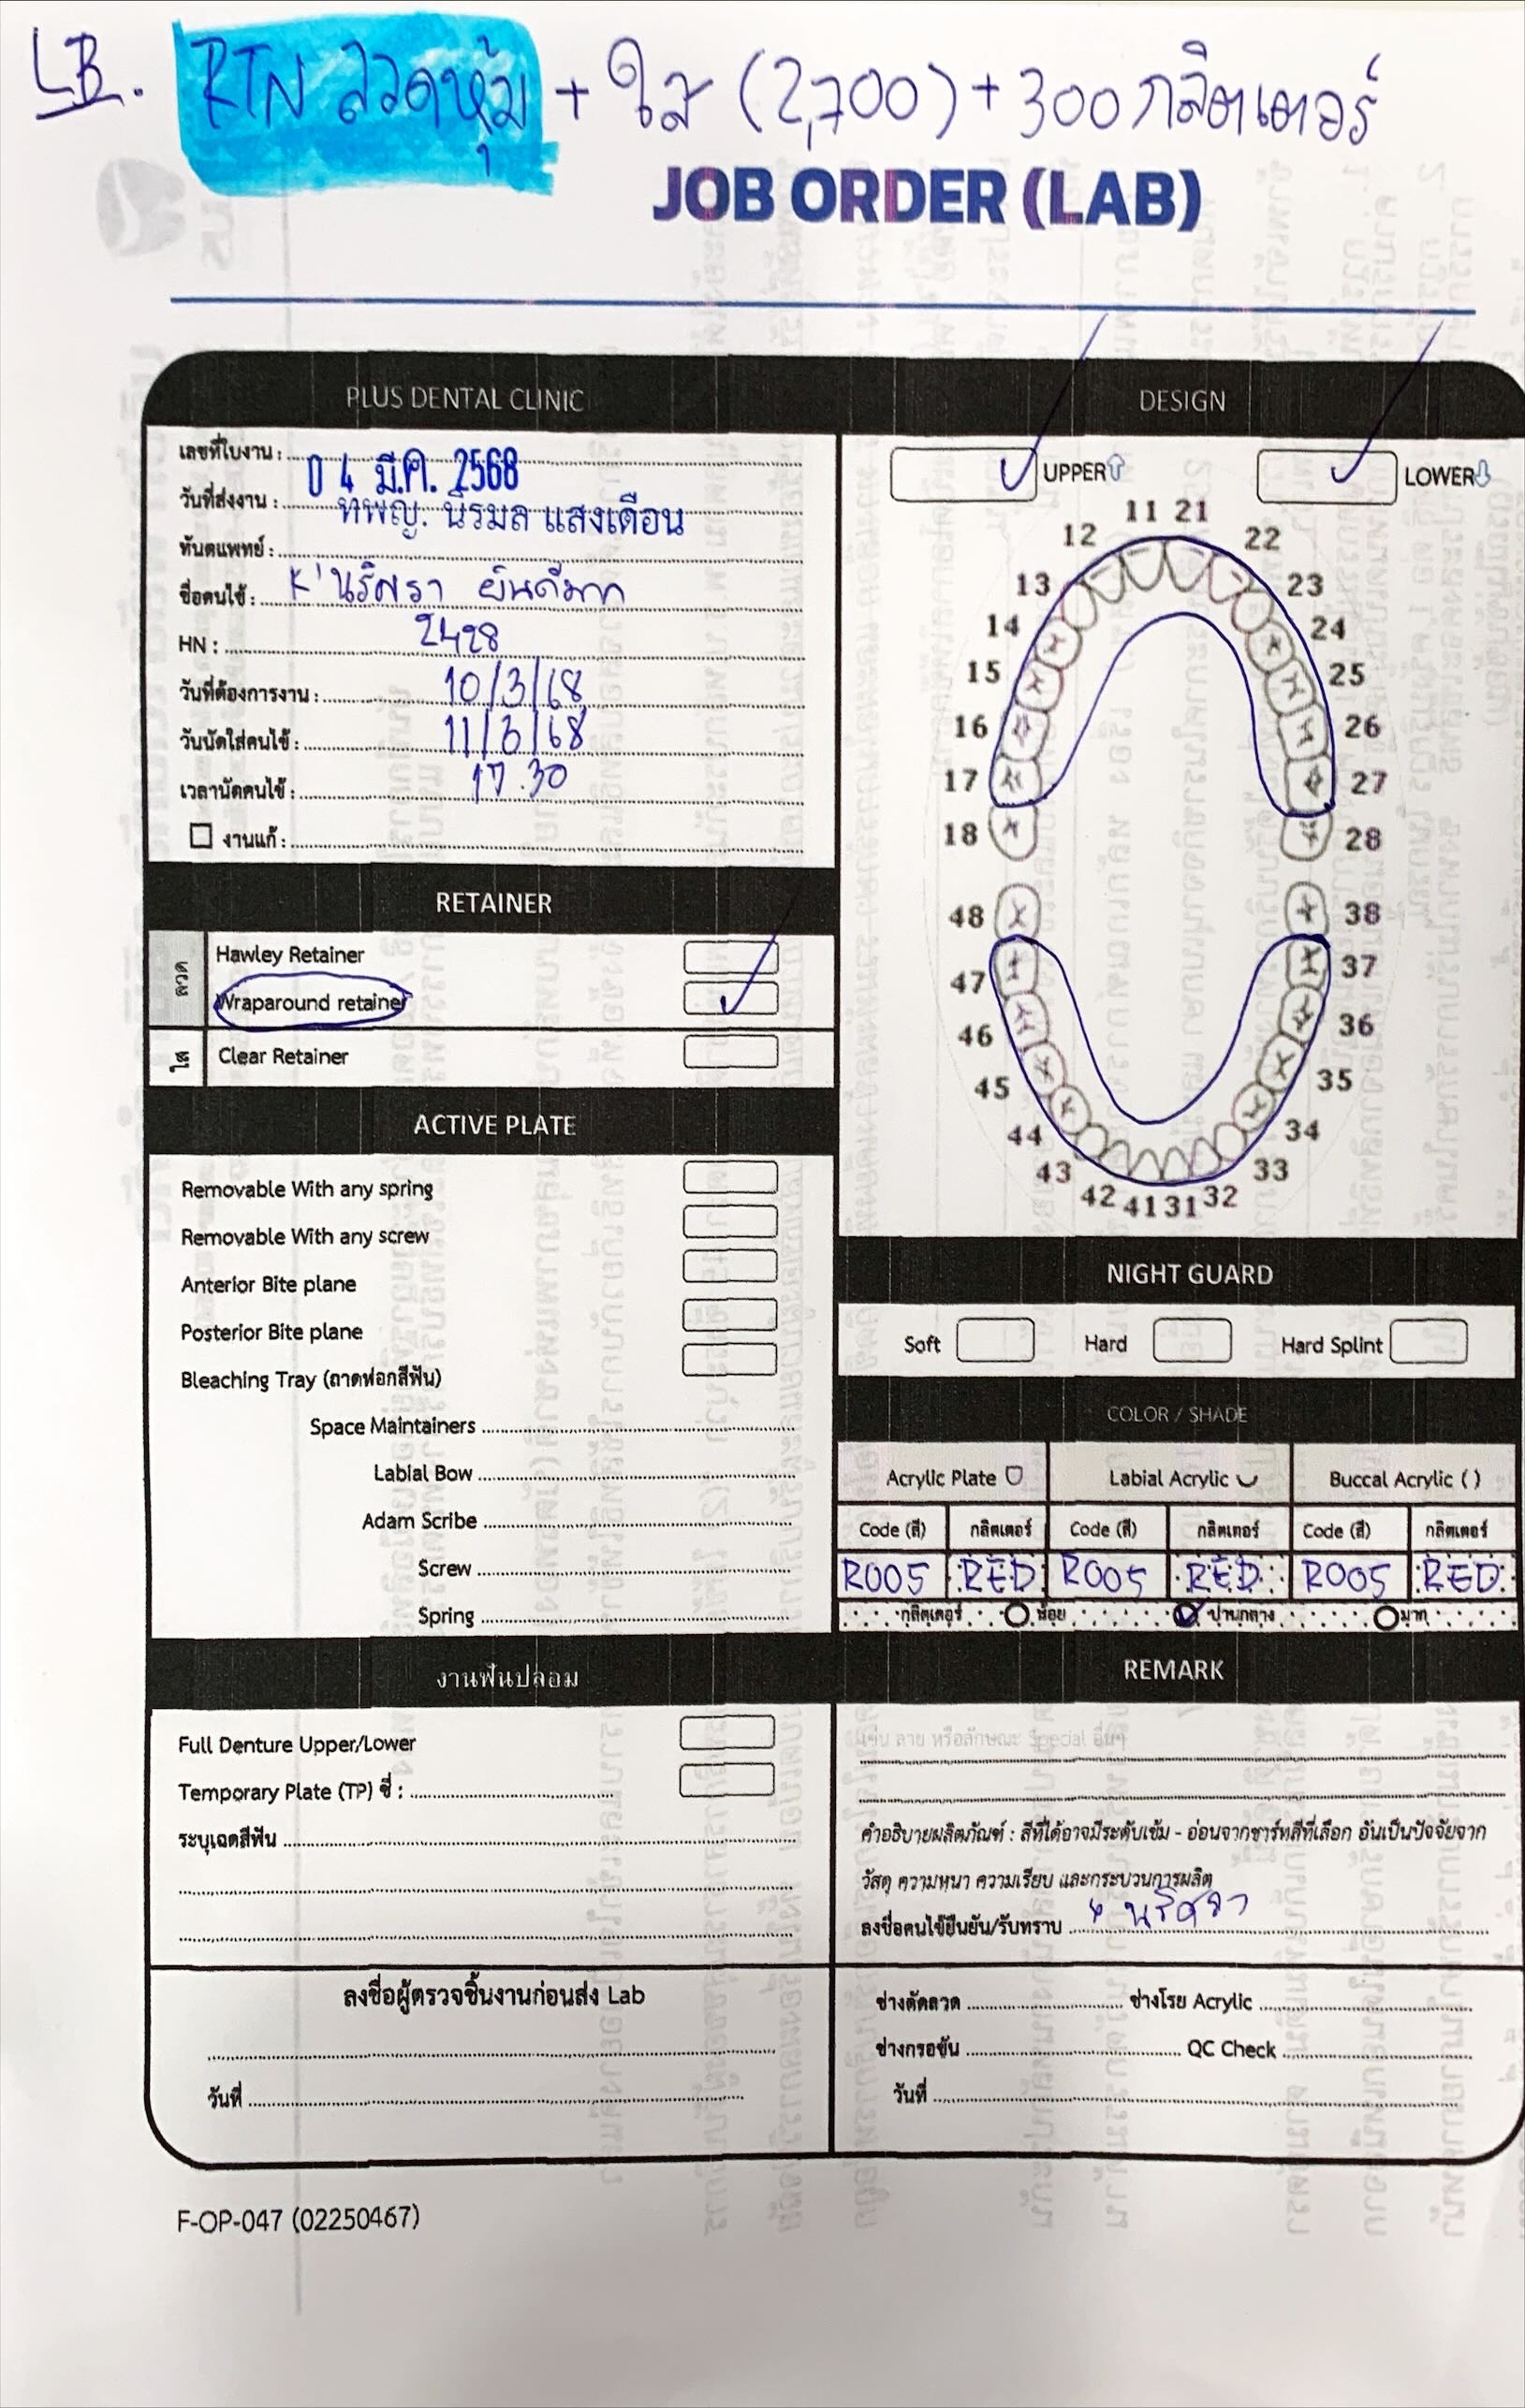 LB. RTN ลวดหุ้ม + ใส (2,700) + 300 กลิตเตอร์
JOB ORDER (LAB)
PLUS DENTAL CLINIC
เลขที่ใบงาน :
วันที่ส่งงาน : 0 4 มี.ค. 2568
ทันตแพทย์ : ทพญ. นิรมล แสงเดือน
ชื่อคนไข้ : K' นริศรา ยินดีมาก
HN : 2428
วันที่ต้องการงาน : 10/3/68
วันนัดใส่คนไข้ : 11/3/68
เวลานัดคนไข้ : 17.30
งานแก้ :
DESIGN
UPPER
LOWER
11 21
12 22
13 23
14 24
15 25
16 26
17 27
18 28
48 38
47 37
46 36
45 35
44 34
43 33
42 41 31 32
RETAINER
ลวด
Hawley Retainer
Wraparound retainer
ใส
Clear Retainer
ACTIVE PLATE
Removable With any spring
Removable With any screw
Anterior Bite plane
Posterior Bite plane
Bleaching Tray (ถาดฟอกสีฟัน)
Space Maintainers
Labial Bow
Adam Scribe
Screw
Spring
NIGHT GUARD
Soft Hard Hard Splint
COLOR / SHADE
Acrylic Plate Labial Acrylic Buccal Acrylic ( )
Code (สี) กลิตเตอร์ Code (สี) กลิตเตอร์ Code (สี) กลิตเตอร์
R005 RED R005 RED R005 RED
กลิตเตอร์ น้อย ปานกลาง มาก
งานฟันปลอม
Full Denture Upper/Lower
Temporary Plate (TP) ซี่ :
ระบุเฉดสีฟัน
REMARK
เช่น ลาย หรือลักษณะ Special อื่นๆ
คำอธิบายผลิตภัณฑ์ : สีที่ได้อาจมีระดับเข้ม - อ่อนจากชาร์ทสีที่เลือก อันเป็นปัจจัยจาก
วัสดุ ความหนา ความเรียบ และกระบวนการผลิต
ลงชื่อคนไข้ยืนยัน/รับทราบ นริศรา
ลงชื่อผู้ตรวจชิ้นงานก่อนส่ง Lab
วันที่
ช่างดัดลวด ช่างโรย Acrylic
ช่างกรอขัน QC Check
วันที่
F-OP-047 (02250467)